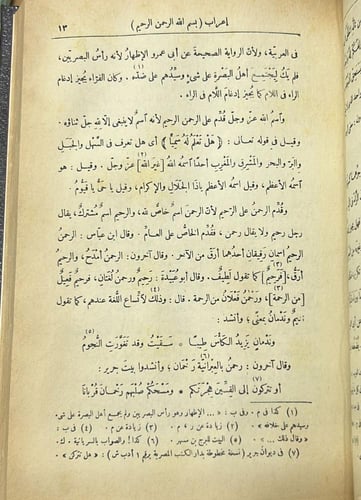 إعراب ( بسم الله الرحمن الرحيم ) ١٣
فى العربيّة ، ولأنّ الرواية الصحيحة عن أبى عمرو الإظهارُ لأنه رأسُ البصريّين ،
فلم يكُ ليجتمع أهلُ البصرة على شىء وسيّدُهم على ضدّه (١) . وكان الفرّاء يُجيز إدغام
الراء فى اللام كما يُجيز إدغامَ اللام فى الراء .
واسمُ الله عزّ وجلّ قُدّم على الرحمن الرحيم لأنه اسمٌ لا ينبغى إلّا لله جلّ ثناؤه .
وقيل فى قوله تعالى : ( هَلْ تَعْلَمُ لَهُ سَمِيًّا ) أى هل تعرف فى السَّهل والجَبل
والبرّ والبحر والمَشْرِق والمَغْرِب أحدًا اسمُه اللهُ [غيرَ الله (٢)] عزّ وجلّ . وقيل : هو
اسمُه الأعظم ، وقيل اسمُه الأعظم ياذا الجَلَال والإكرام ، وقيل يا حىُّ يا قيّومُ .
وقُدّم الرحمنُ على الرّحيم لأنّ الرحمنَ اسمٌ خاصٌّ لله ، والرحيم اسمٌ مُشترَكٌ ، يقال
رجل رحيم ولا يقال رحمن ، فقُدّم الخاصُّ على العامّ . وقال ابن عبّاس : الرحمنُ
الرحيمُ اسمان رقيقان أحدُهما أرقّ من الآخر . وقال آخرون : الرحمنُ أمدَحُ ، والرحيمُ
أرقّ ، [فرحيمٌ (٣)] كما تقول لَطيفٌ . وقال أبو عُبيدة : رَحِيمٌ ورحمنُ لُغتان ، فرحيمٌ فَعِيلٌ
[من الرحمة (٣)] ، ورَحْمٰنُ فَعْلانُ من الرحمة . قال : وذلك (٤) لاتّساع اللّغة عندهم ، كما تقول
نديمٌ ونَدْمانُ بمعنًى ؛ وأنشد :
ونَدمانٍ يَزيدُ الكأسَ طِيبًا * سَقَيْتُ وقد تَغَوّرتِ النُّجومُ (٥)
وقال آخرون : رحمنُ بالعِبْرانيّة (٦) رَخْمان ؛ وأنشدوا بيتَ جرير :
أو تتركون (٧) إلى القسَّينِ هِجرتَكم * ومَسْحَكُم صُلْبَهم رَخْمانَ قُرْبانَا
(١) كذا فى م . وفى ب : « ... الإظهار وهو رأس البصريين ولم يجمع أهل البصرة على شىء
وسيدهم على خلافه » . (٢) زيادة عن ر ، م . (٣) زيادة عن م . (٤) فى ب :
« وقال ذلك ... » . (٥) البيت للبرج بن مسهر . (٦) كذا ! والصواب بالسريانية . ك .
(٧) فى ديوان جرير (نسخة مخطوطة بدار الكتب المصرية برقم ١ أدب ش) : « هل تتركن » .